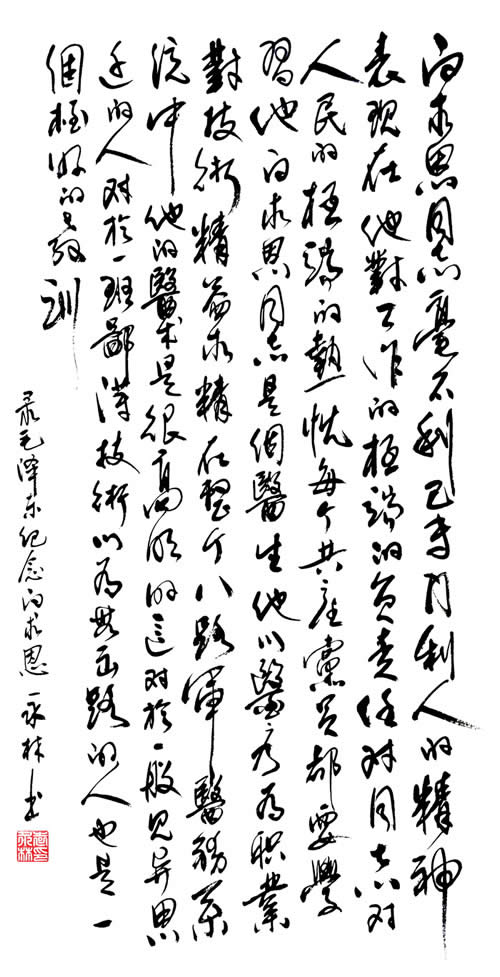 白求恩同志毫不利己专门利人的精神
表现在他對工作的极端的负责任对同志对
人民的极端的熱忱每个共産黨员都要學
習他白求恩同志是個醫生他以醫疗为职業
對技術精益求精在整个八路軍醫务系
统中他的醫术是很高明的这对於一般见异思
迁的人对於一班鄙薄技術以为无出路的人也是一
個极好的教训
录毛泽东纪念白求恩 永林书